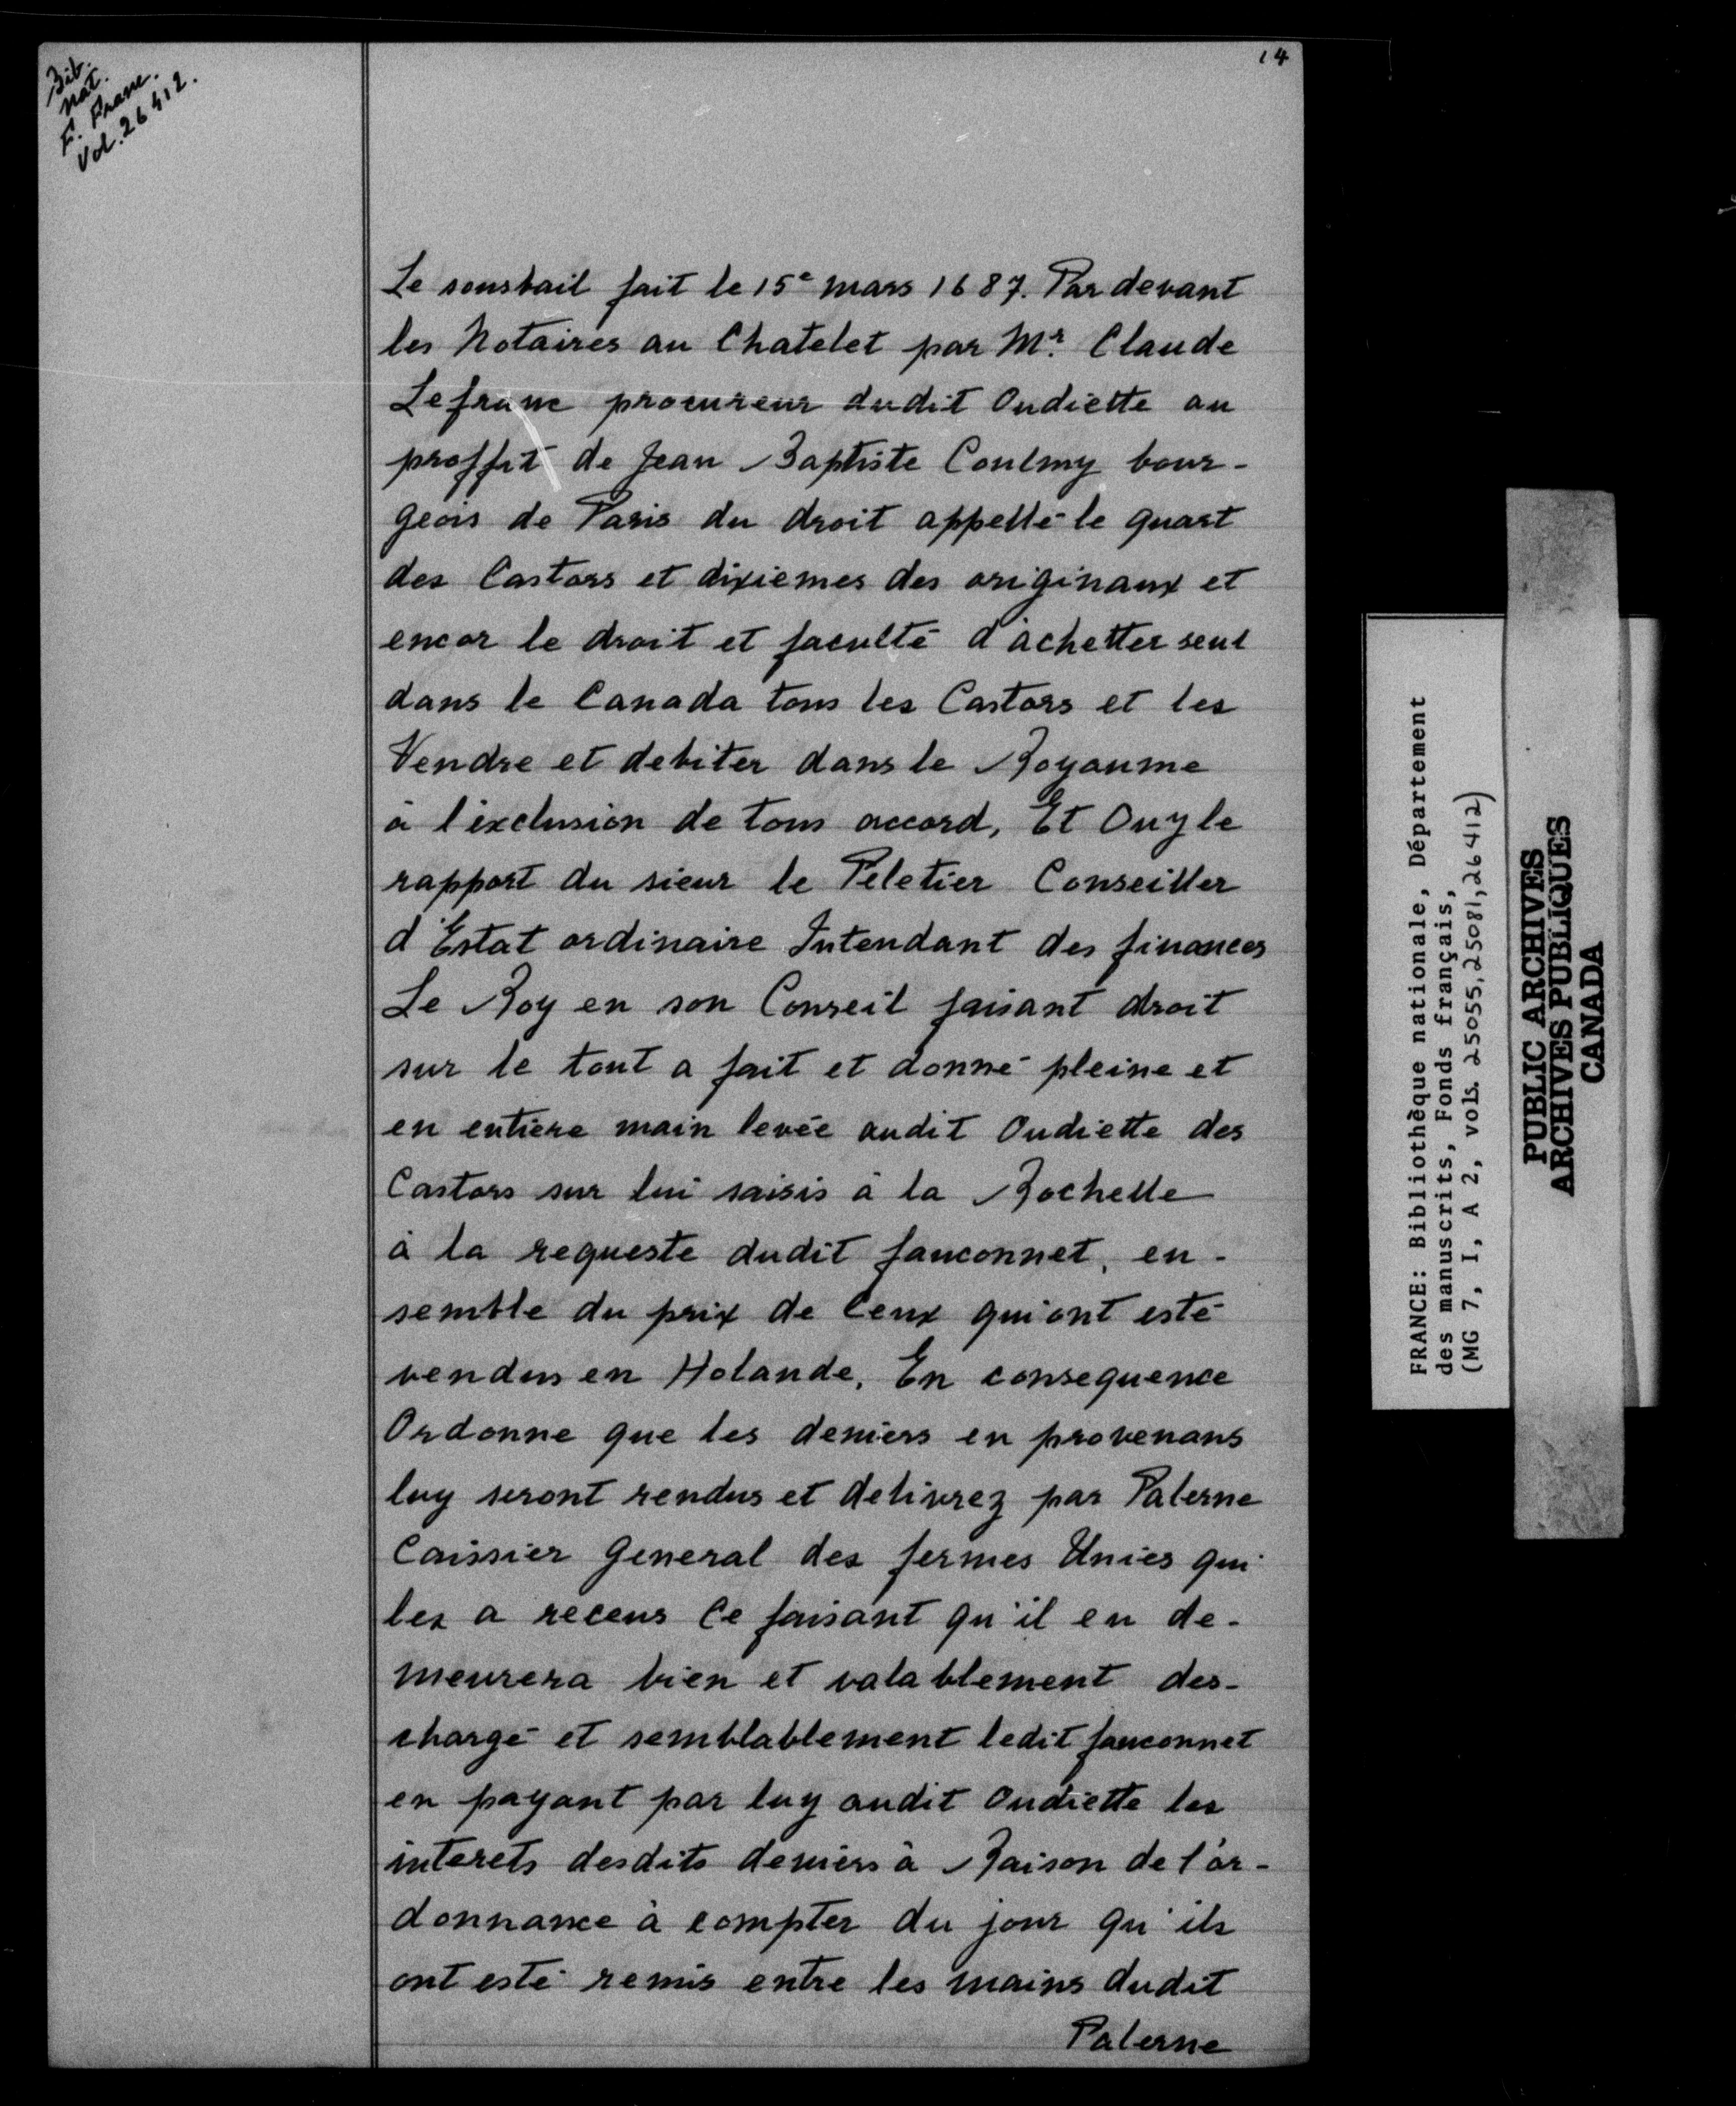 14
Bib.
nat.
F. Franc.
Vol. 26412.
Le sousbail fait le 15e mars 1687. Par devant
les Notaires au Chatelet par Mr. Claude
Lefranc procureur dudit Oudiette au
proffit de Jean Baptiste Coulmy bour-
geois de Paris du droit appellé le quart
des Castors et dixiemes des originaux et
encor le droit et faculté d'achetter seul
dans le Canada tous les Castors et les
Vendre et debiter dans le Royaume
à l'exclusion de tous accord, Et Ouy le
rapport du sieur le Peletier Conseiller
d'Estat ordinaire Intendant des finances
Le Roy en son Conseil faisant droit
sur le tout a fait et donné pleine et
en entiere main levée audit Oudiette des
Castors sur lui saisis à la Rochelle
à la requeste dudit fauconnet, en-
semble du prix de Ceux qui ont esté
vendus en Holande, En consequence
Ordonne que les deniers en provenans
luy seront rendus et delivrez par Palerne
Caissier General des fermes Unies qui
les a receus Ce faisant qu'il en de-
meurera bien et valablement des-
chargé et semblablement ledit fauconnet
en payant par luy audit Oudiette les
interets desdits deniers à Raison de l'or-
donnance à compter du jour qu'ils
ont esté remis entre les mains dudit
Palerne
FRANCE: Bibliothèque nationale, Département
des manuscrits, Fonds français,
(MG 7, I, A 2, vols. 25055, 25081, 26412)
PUBLIC ARCHIVES
ARCHIVES PUBLIQUES
CANADA